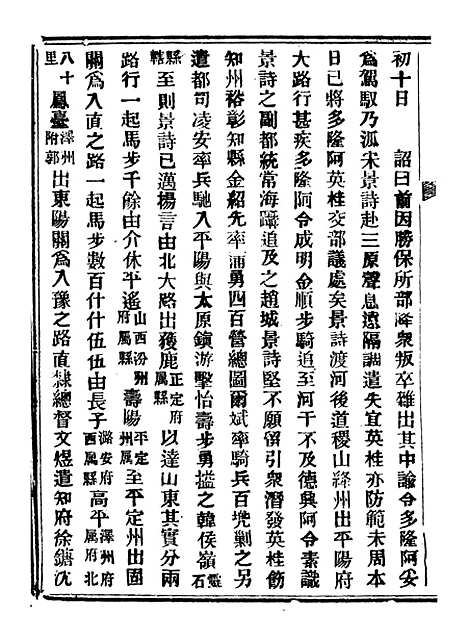 初十日　詔曰前因勝保所部降衆叛卒雜出其中諭令多隆阿妥
爲駕馭乃派宋景詩赴三原聲息遠隔調遣失宜英桂亦防範未周本
日已將多隆阿英桂交部議處矣景詩渡河後道稷山絳州出平陽府
大路行甚疾多隆阿令成明金順步騎追至河干不及德興阿令素識
景詩之副都統常海躡追及之趙城景詩堅不願留引衆潛發英桂飭
知州裕彰知縣金紹先率涌勇四百營總圖爾斌率騎兵百兜剿之另
遣都司凌安率兵馳入平陽與太原鎮游擊怡壽步勇搤之韓侯嶺靈石
縣轄至則景詩已邁揚言由北大路出獲鹿正定府屬縣以達山東其實分兩
路行一起馬步千餘由介休平遙山西汾州府屬縣壽陽平定州屬至平定州出固
關爲入直之路一起馬步數百什什伍伍由長子潞安府西屬縣高平澤州府屬府北
八十里鳳臺澤州附郭出東陽關爲入豫之路直隸總督文煜遣知府徐鏞沈